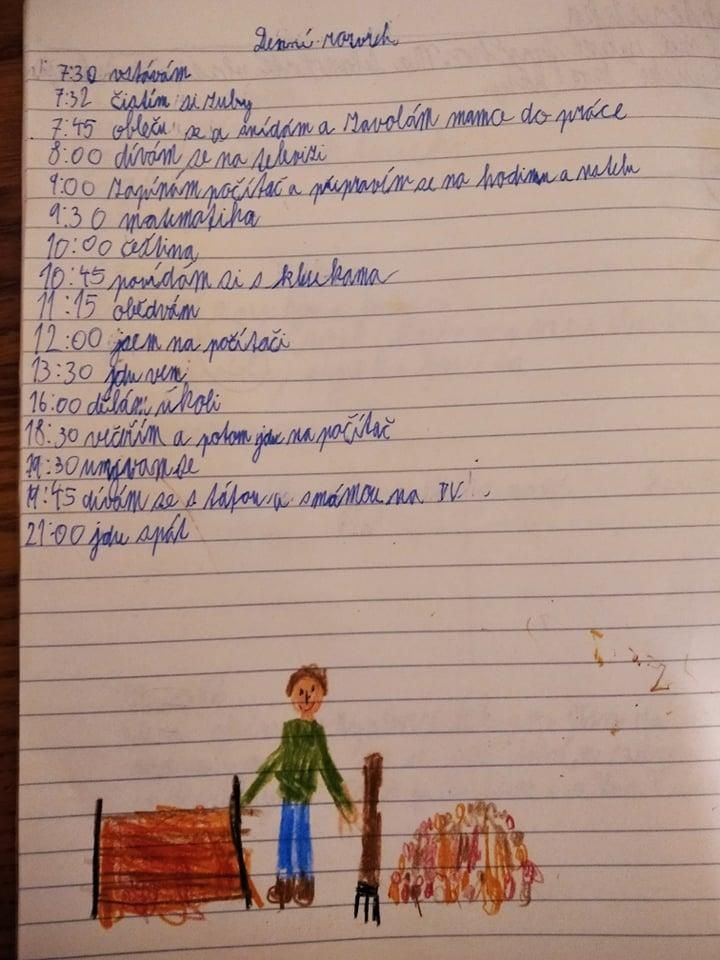 Denní rozvrh
7:30 vstávám
7:32 čistím si zuby
7:45 obleču se a snídám a zavolám mamce do práce
8:00 dívám se na televizi
9:00 zapínám počítač a připravím se na hodinu a
9:30 matematika
10:00 čeština
10:45 povídám si s klukama
11:15 obědvám
12:00 jsem na počítači
13:30 jdu ven
16:00 dělám úkoli
18:30 večeřím a potom jdu na počítač
19:30 umjvam se
19:45 dívám se s tátou a smámou na TV
21:00 jdu spát